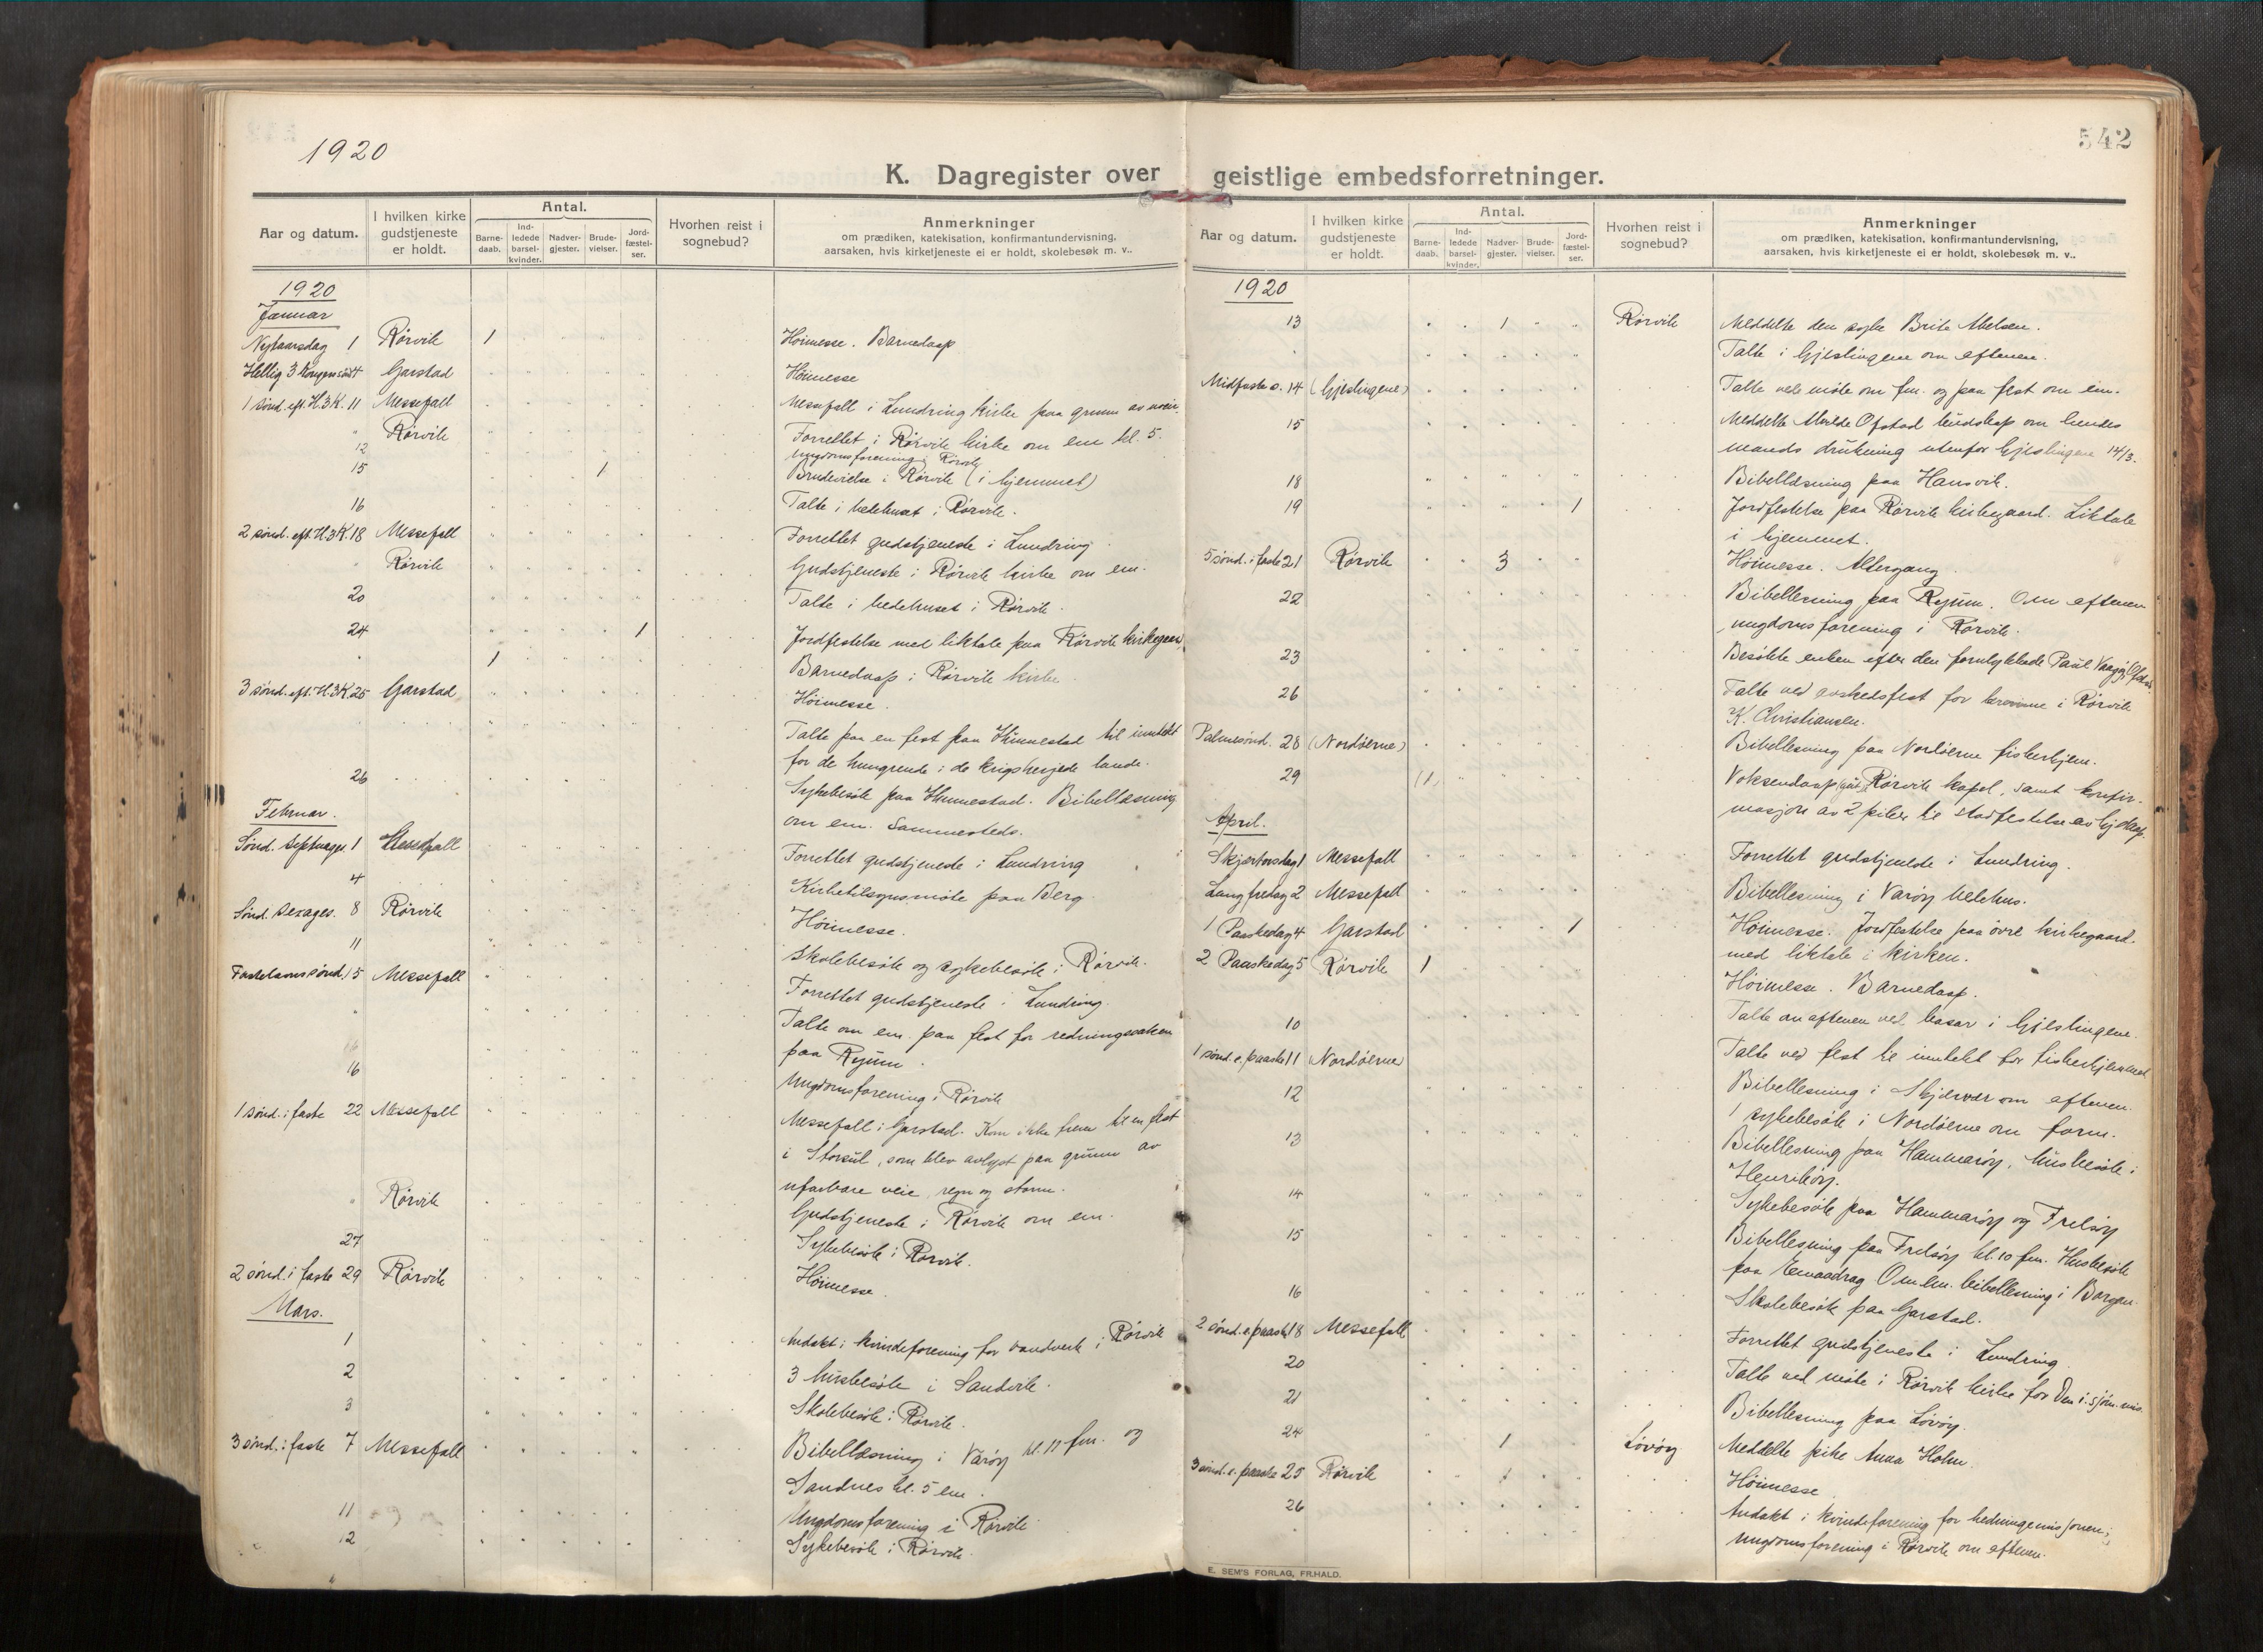 1920
542
K. Dagregister over geistlige embedsforretninger.
Aar og datum.
I hvilken kirke gudstjeneste er holdt.
Antal.
Barne-daab.
Ind-ledede barsel-kvinder.
Nadver-gjester.
Brude-vielser.
Jord-fæstel-ser.
Hvorhen reist i sognebud?
Anmerkninger
om prædiken, katekisation, konfirmantundervisning,
aarsaken, hvis kirketjeneste ei er holdt, skolebesøk m. v..
1920
Januar
Nytaarsdag 1 Rørvik 1 Høimesse. Barnedaap
Hellig 3 Kongers 4 Garstad Høimesse
1 sønd. eft. H.3K. 11 Messefall Messefall i Lundring kirke paa grunn av
" Rørvik Forrettet i Rørvik kirke om em kl. 5.
12 Ungdomsforening i Rørvik
15 1 Brudevielse i Rørvik (i hjemmet)
16 Talte i bedehuset i Rørvik.
2 sønd. eft. H.3K. 18 Messefall Forrettet gudstjeneste i Lundring
" Rørvik Gudstjeneste i Rørvik kirke om em.
20 Talte i bedehuset i Rørvik.
24 1 Jordfestelse med liktale paa Rørvik kirkegaard.
" 1 Barnedaap i Rørvik kirke
3 sønd. eft. H.3K. 25 Garstad Høimesse.
Talte paa en fest paa Hunnestad til inntekt
for de hungrende i de krigsherjede lande.
26 Sykebesøk paa Hunnestad. Bibellæsning
om em. sammesteds.
Februar.
Sønd. Septuages. 1 Messefall Forrettet gudstjeneste i Lundring
4 Kirketilsynsmøte paa Berg
Sønd. Sexages. 8 Rørvik Høimesse.
11 Skolebesøk og sykebesøk i Rørvik.
Fastelavns sønd. 15 Messefall Forrettet gudstjeneste i Lundring.
" Talte om em. paa fest for redningssaken
paa Ryum.
16 Ungdomsforening i Rørvik
1 sønd. i faste 22 Messefall Messefall i Garstad. Kom ikke frem til en fest
i Storkul, som blev avlyst paa grunn av
ufarbare veie, regn og storm.
" Rørvik Gudstjeneste i Rørvik om em.
27 Sykebesøk i Rørvik.
2 sønd. i faste 29 Rørvik Høimesse
Mars.
1 Andakt i kvindeforening for vandverk i Rørvik
2 3 husbesøk i Sandvik.
3 Skolebesøk i Rørvik.
3 sønd. i faste 7 Messefall Bibellæsning i Varøy kl. 11 fm. og
Sandnes kl. 5 em.
11 Ungdomsforening i Rørvik
12 Sykebesøk i Rørvik.
Aar og datum.
I hvilken kirke gudstjeneste er holdt.
Antal.
Barne-daab.
Ind-ledede barsel-kvinder.
Nadver-gjester.
Brude-vielser.
Jord-fæstel-ser.
Hvorhen reist i sognebud?
Anmerkninger
om prædiken, katekisation, konfirmantundervisning,
aarsaken, hvis kirketjeneste ei er holdt, skolebesøk m. v..
1920
13 1 Rørvik Meddelte den syke Brita Abelsen.
Talte i Gjeslingene om eftenen.
Midfaste s. 14 (Gjeslingene) Talte ved møte om fm. og paa fest om em.
15 Meddelte Ofstad budskap om hendes
mands drukning utenfor Gjeslingene 14/3.
18 Bibellæsning paa Hansvik.
19 1 Jordfestelse paa Rørvik kirkegaard. Liktale
i hjemmet.
5 sønd. i faste 21 Rørvik 3 Høimesse. Altergang
22 Bibellesning paa Ryum. Om eftenen
ungdomsforening i Rørvik.
23 Besøkte enken efter den forulykkede Paul
26 Talte ved avskedsfest for lærerinne i Rørvik
K. Christiansen.
Palmesønd. 28 (Nordøerne) Bibellesning paa Nordøerne fiskerhjem.
29 (1) Voksendaap Rørvik kapel, samt konfir-
masjon av 2 piker til stadfestelse av hj.daap.
April.
Skjærtorsdag 1 Messefall Forrettet gudstjeneste i Lundring.
Langfredag 2 Messefall Bibellesning i Varøy bedehus.
1 Paaskedag 4 Garstad 1 Høimesse. Jordfestelse paa øvre kirkegaard
med liktale i kirken.
2 Paaskedag 5 Rørvik 1 Høimesse. Barnedaap.
10 Talte om aftenen ved basar i Gjeslingene
1 sønd. e. paaske 11 (Nordøerne) Talte ved fest til inntekt for fiskerhjemmet
12 Bibellesning i Skjærvær om eftenen.
1 sykebesøk i Nordøerne om form.
13 Bibellesning paa Hammarøy, husbesøk i
Henrikøy.
14 Sykebesøk paa Hammarøy og Frelsøy
15 Bibellesning paa Frelsøy kl. 10 fm. Husbesøk
paa Emaadrag Om em. bibellesning i Borgan.
16 Skolebesøk paa Garstad.
2 sønd. e. paaske 18 Messefall Forrettet gudstjeneste i Lundring
20 Talte ved møte i Rørvik kirke for Den i. sjøm. mis.
21 Bibellesning paa Løvøy.
24 1 Løvøy Meddelte pike Anna Holm.
3 sønd. e. paaske 25 Rørvik Høimesse
26 Andakt i kvindeforening for hedningemisjonen;
ungdomsforening i Rørvik om eftenen.
E. SEM'S FORLAG, FR.HALD.